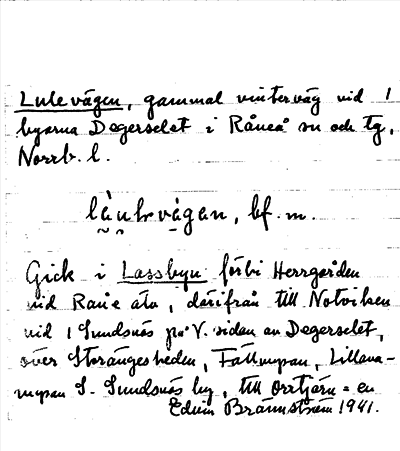 Lulevägen, gammal vinterväg vid 1
byarna Degerselet i Råneå sn och tg,
Norrb. l.
lä̀ulɐvä́gan, bf. m.
Gick i Lassbyn förbi Herrgården
vid Råne älv, därifrån till Notviken
vid 1 Sundsnäs på V. sidan av Degerselet,
över Storängesheden, Fällmyran, Lillava-
myran S. Sundsnäs by, till Orrtjärn = en
Edvin Brännström 1941.